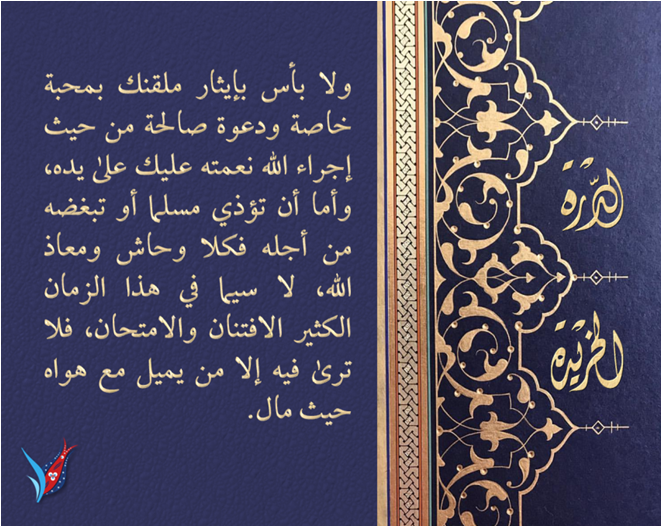 ولا بأس بإيثار ملقنك بمحبة
خاصة ودعوة صالحة من حيث
إجراء الله نعمته عليك علىٰ يده،
وأما أن تؤذي مسلما أو تبغضه
من أجله فكلا وحاش ومعاذ
الله، لا سيما في هذا الزمان
الكثير الافتنان والامتحان، فلا
ترىٰ فيه إلا من يميل مع هواه
حيث مال.
الدرة
الخريدة